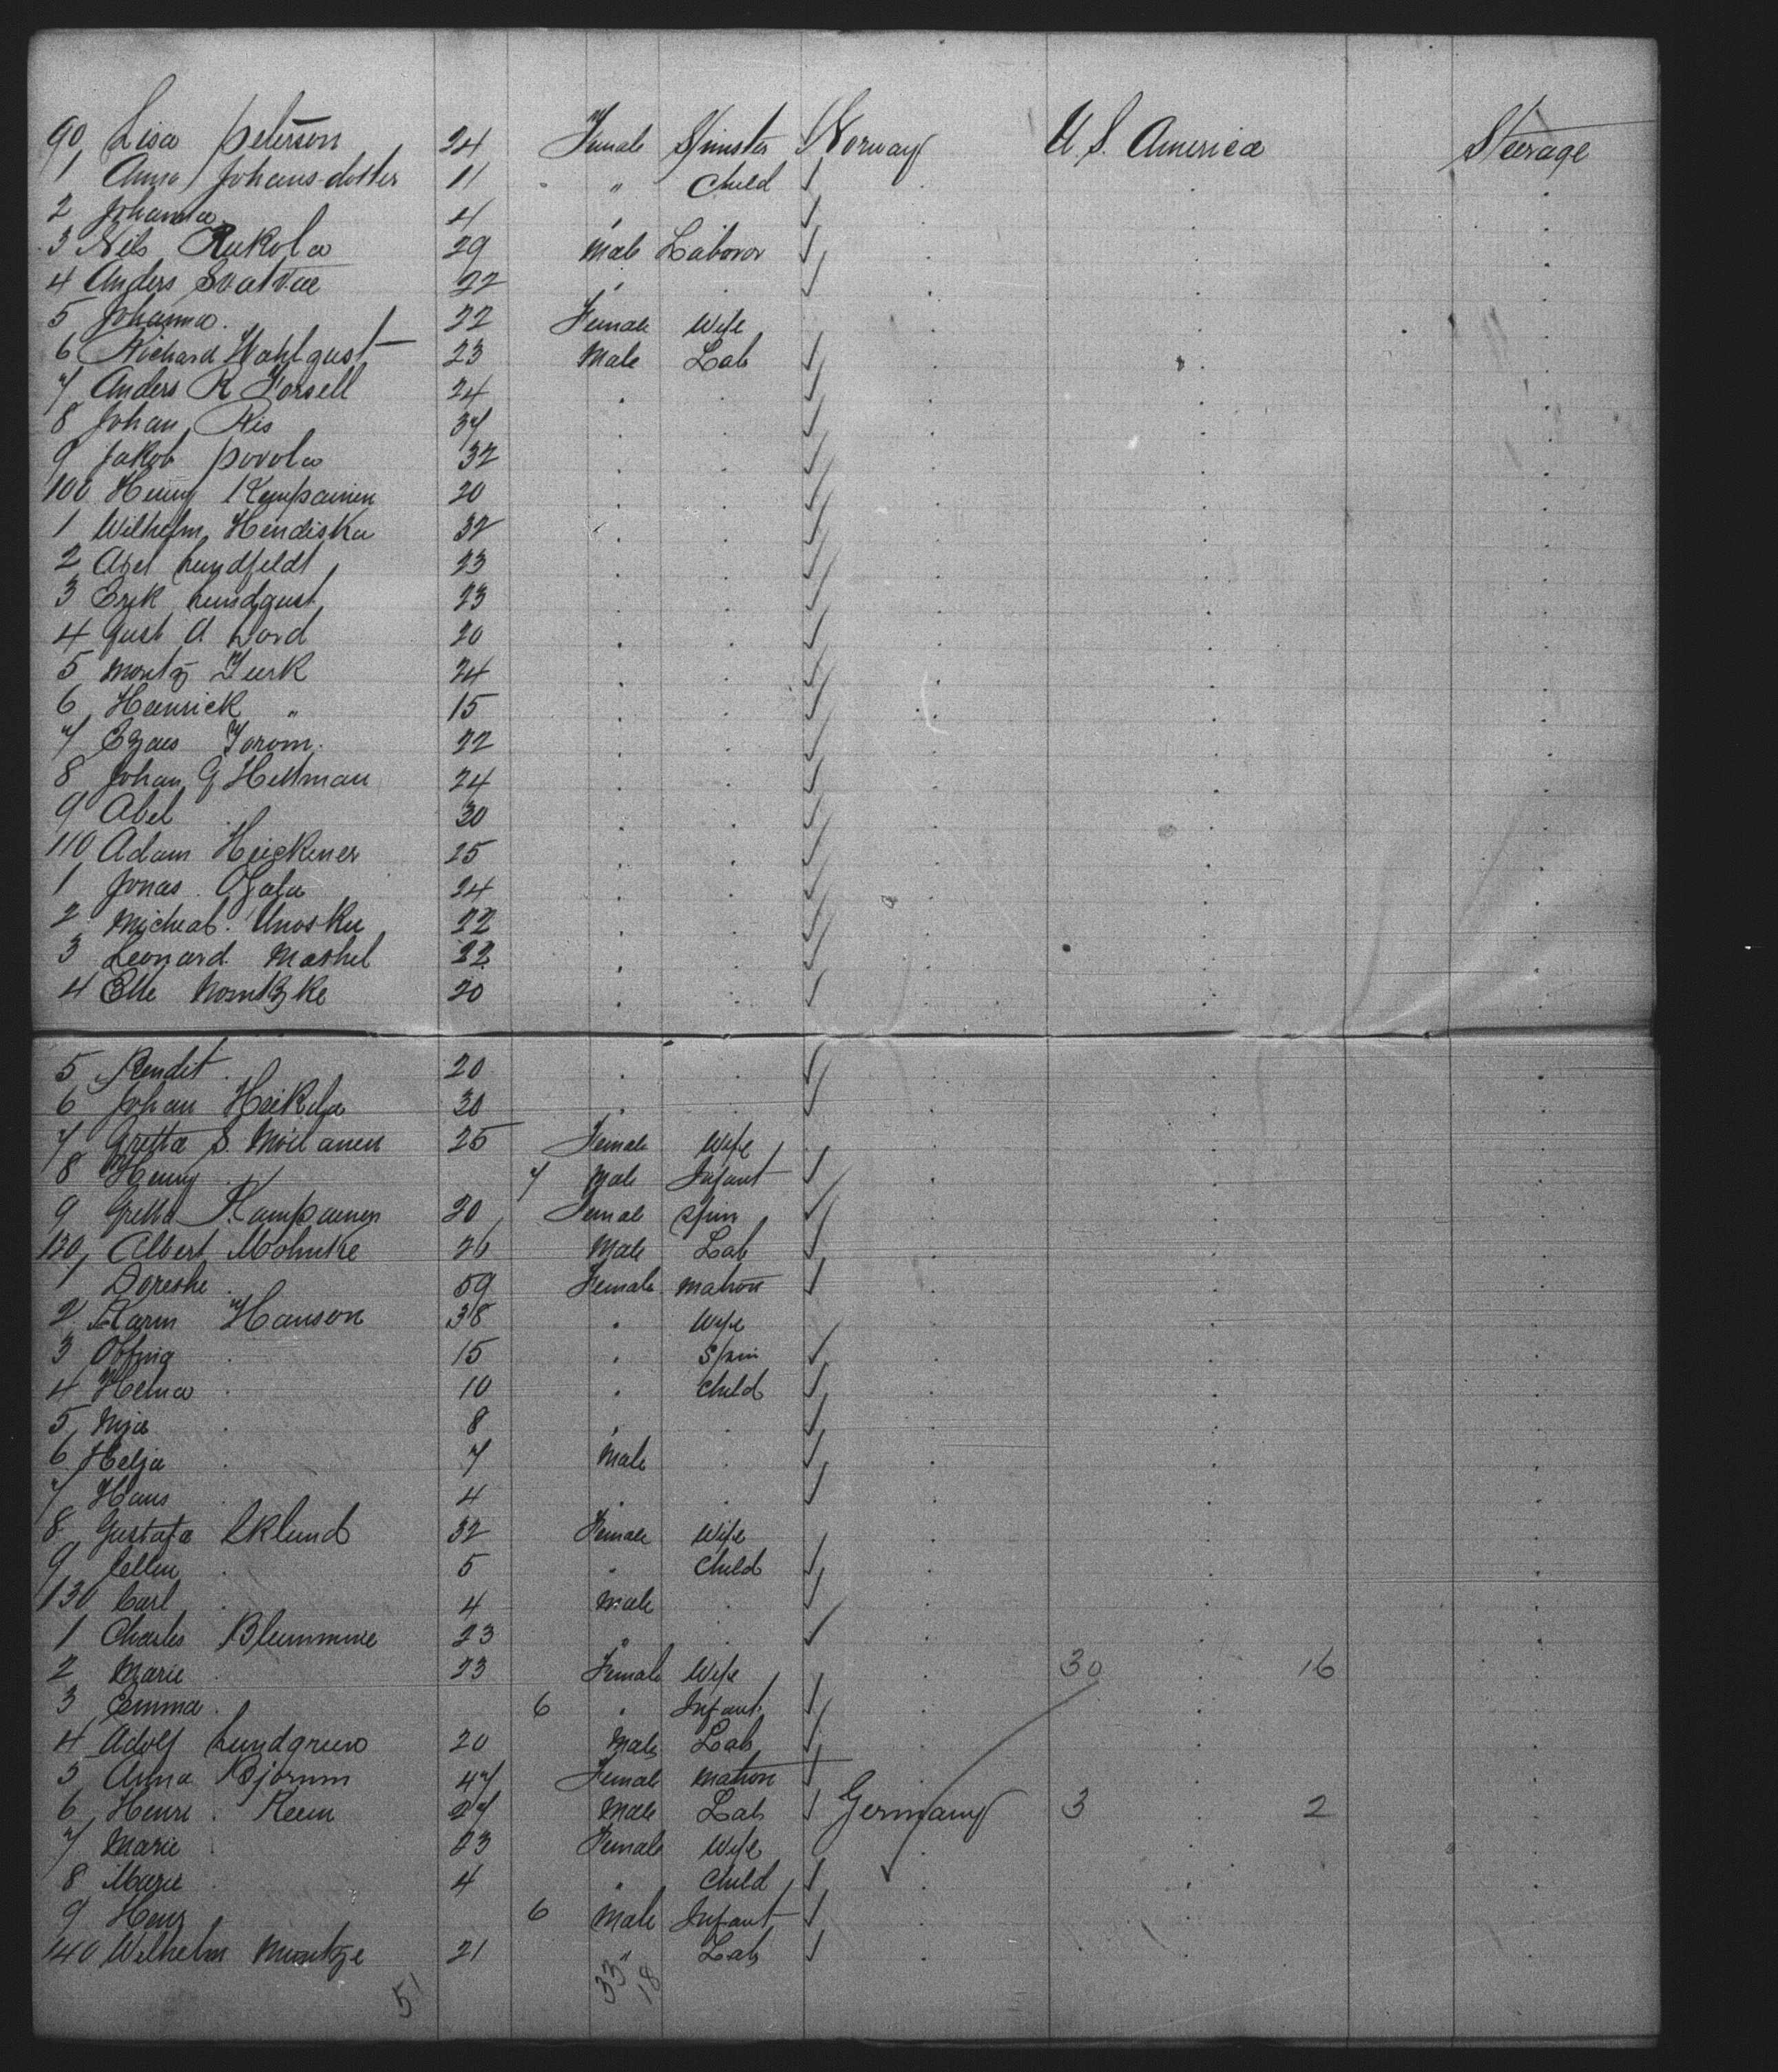 90 Lisa Peterson 24 Female Spinster Norway U.S. America Steerage
1 Anna Johans-dotter 11 " Child
2 Johanna 4
3 Nils Rukola 29 Male Laboror
4 Anders 22
5 Johanna. 22 Female Wife
6 Richard Wahlqust 23 Male Lab
7 Anders R Forsell 24
8 Johan Ris 37
9 Jakob Povola 32
100 Henry Kempainen 20
1 Wilhelm Hendiska 32
2 Axel Lundfeldt 23
3 Erik Lundqust 23
4 Gust A Lord 20
5 Moritz Turk 24
6 Heinrick " 15
7 22
8 Johan G Hellman 24
9 Abel . 30
110 Adam Heickiner 25
1 Jonas Ojala 24
2 Micheal Unosku 22
3 Leonard Mashel 22
4 Elle 20
5 Rendit . 20
6 Johan Heikila 30
7 Gretta S. Moilanen 25 Female Wife
8 Henry . 7 Male Infant
9 Gretta Kampainen 20 Female Spin
120 Albert Mohnke 26 Male Lab
1 Doreshe . 59 Female Matron
2 Karin Hanson 38 . Wife
3 15 . Spin
4 Helna . 10 . Child
5 Mja . 8
6 Helja . 7 Male
7 Hans . 4
8 Gustafa Eklund 32 Female Wife
9 Ellen . 5 " Child
130 Carl . 4 Male
1 Charles Blummine 23 "
2 Marie . 23 Female Wife 30 16
3 Emma . 6 . Infant
4 Adolf Lundgren 20 Male Lab
5 Anna Bjornm 47 Female Matron
6 Henri . Reem 27 Male Lab Germany 3 2
7 Marie . 23 Female Wife
8 Marie . 4 " Child
9 Henz . 6 Male Infant
140 Wilhelm Muntze 21 " Lab
51 33 18